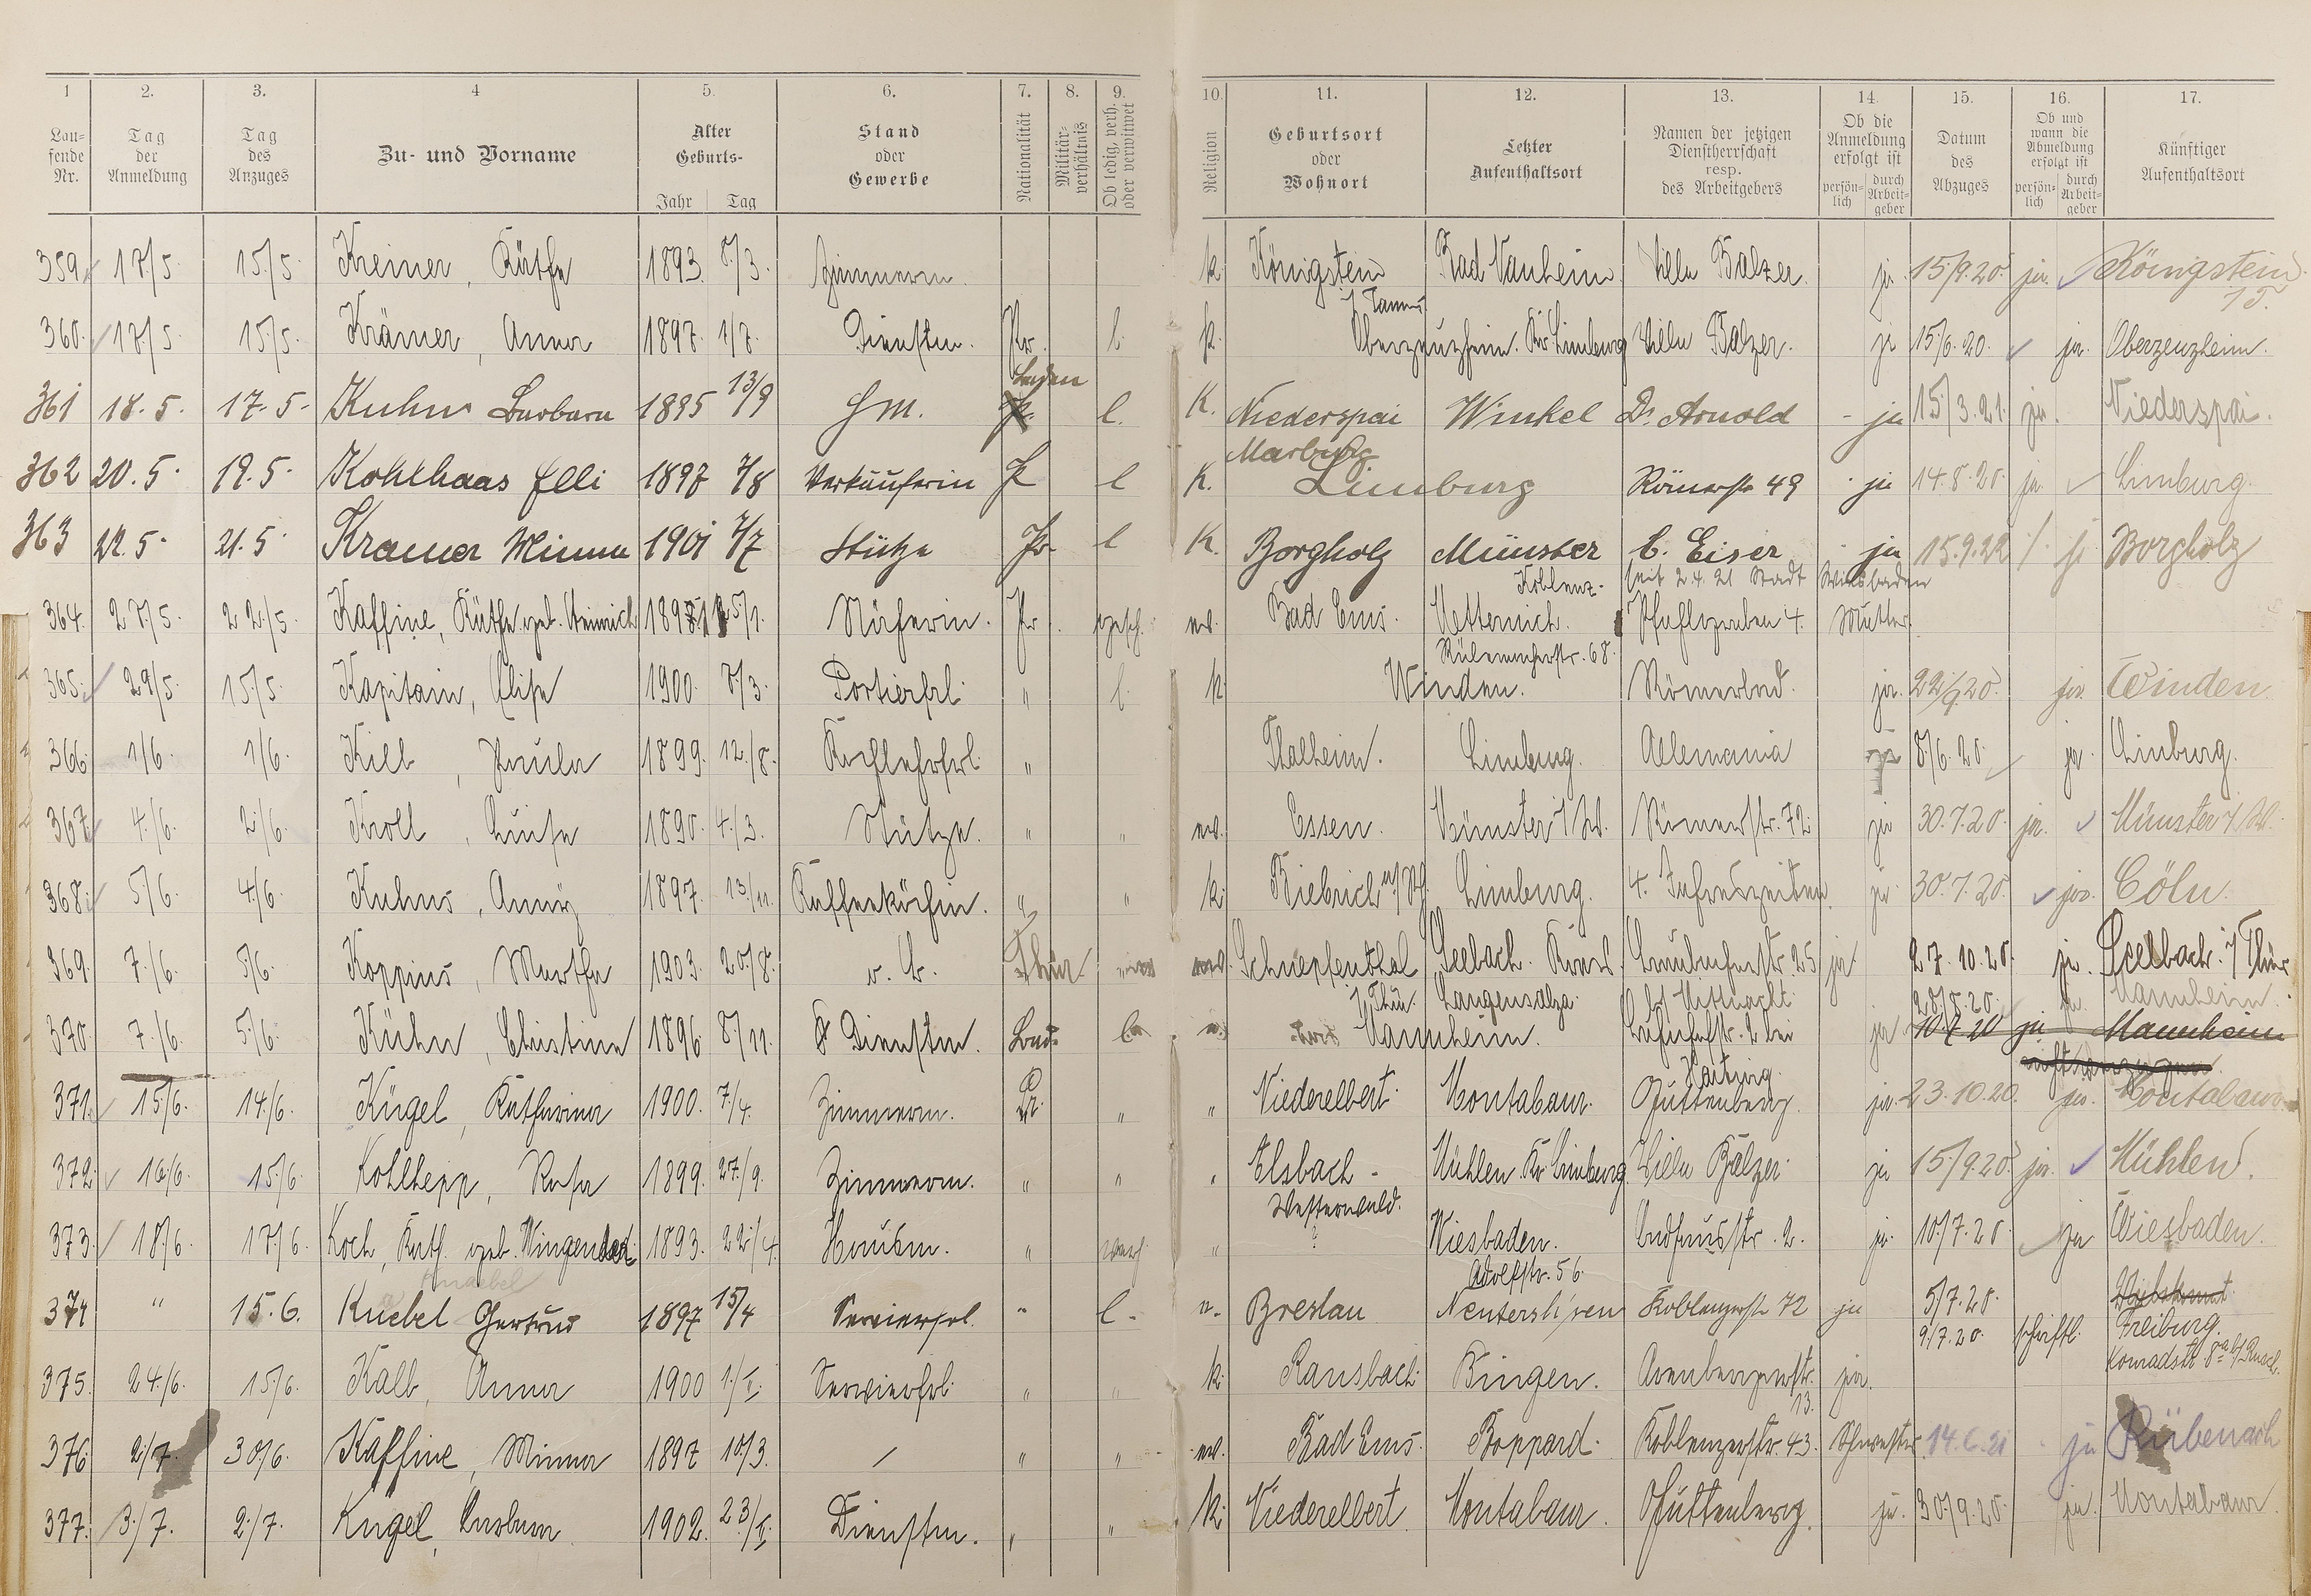 1 2. 3. 4 5. 6. 7. 8. 9. 10. 11. 12. 13. 14. 15. 16. 17.
Laufende Nr.
Tag der Anmeldung
Tag des Anzuges
Zu- und Vorname
Alter Geburts-
Jahr Tag
Stand oder Gewerbe
Nationalität
Militär-verhältnis
Ob ledig, verh. oder verwitwet
Religion
Geburtsort oder Wohnort
Letzter Aufenthaltsort
Namen der jetzigen Dienstherrschaft resp. des Arbeitgebers
Ob die Anmeldung erfolgt ist
persön-lich durch Arbeit-geber
Datum des Abzuges
Ob und wann die Abmeldung erfolgt ist
persön-lich durch Arbeit-geber
Künftiger Aufenthaltsort
359 17/5. 15./5. Kreiner, Käthe 1893. 8./3. Zimmerm. k Königstein i/Taunus Bad Nauheim Villa Balzer. ja 15/9.20. ja. Königstein i/T.
360. 17/5. 15/5. Krämer, Anna 1897. 1/7. Dienstm. Pr. l. k. Oberzeuzheim. Kr. Limburg Villa Balzer. ja 15/6.20. ja. Oberzeuzheim.
361 18.5. 17.5. Kuhn Barbara 1895 13/9 l. K. Niederspai Winkel Dr. Arnold - ja 15/3.21. ja. Niederspai.
362 20.5. 19.5. Kohlhaas Elli 1897 7/8 Verkäuferin P l K. Marburg Limburg Römerstr 49 ja 14.8.20. ja Limburg.
363 22.5. 21.5. Kramer Minna 1901 7/7 Stütze Pr. l K. Borgholz Münster C. Eiser ja 15.9.22 ja Borgholz
seit 2.4.21 Stadt Wiesbaden
364. 27./5. 22./5. Kaffine, Käthe geb. Heinrich Näherin. Pr. gesch. ev. Bad Ems. Koblenz- Metternich. Rübenacherstr. 68. Pfahlgraben 4. Mutter
365. 29/5. 15./5. Kapitain, Elise 1900. 8/3. Portierfrl. " l. k Winden. Römerbad. ja. 22/9.20. ja. Winden.
366. 1/6. 1/6. Kill, Paula 1899. 12./8. Kochlehrfrl. " Thalheim. Limburg. Allemania ja 8/6.20. ja. Limburg.
367. 4./6. 2/6. Kroll, Luise 1890. 4./3. Stütze. " " ev. Essen. Münster i/W. Römerstr. 72. ja 30.7.20. ja. Münster i/W.
368. 5/6. 4/6. Kuhns, Anny 1897. 13./11. Kaffeeköchin. " " k. Biebrich a/Rh. Limburg. 4. Jahreszeiten. ja 30.7.20. ja. Cöln.
369. 7./6. 5/6. Koppius, Martha 1903. 20./8. Thür. ev. Schnepfenthal i/Thür. Seebach. Langensalza. 25 ja 27.10.20. ja. Seebach. i/Thür
370. 7./6. 5/6. Kühn, Christine 1896. 8/11. Dienstm. Bad. Mannheim. ja 28/8.20. Mannheim.
10.7.20 ja Mannheim
371. 15/6. 14./6. Kügel, Katharina 1900. 7/4. Zimmerm. Pr. " " Niederelbert. Montabaur. Guttenberg. ja. 23.10.20. ja. Montabaur.
372. 16./6. 15./6. Kohlhepp, Rosa 1899. 27./9. Zimmerm. " " " Elsbach - Westerwald. Mühlen. Kr. Limburg. Villa Balzer. ja 15/9.20. ja. Mühlen.
373. 18/6. 17./6. Koch, Kath. geb. Wingender. 1893. 22./4. Hausm. " " ? Wiesbaden. Adolfstr. 56. ja. 10./7.20. ja Wiesbaden.
Knaebel
374 " 15.6. Knebel Gertrud 1897 15/4 Servierfrl. " l- Breslau Koblenzerstr 72 ja 5/7.20. 9/7.20. schriftl. Freiburg.
375. 24./6. 15/6. Kalb, Anna 1900 1./I. Servierfrl. " " k. Ransbach. Bingen. Arenbergerstr. 13. ja.
376. 2./7. 30/6. Kaffine, Minna 1897 10/3. / " " ev. Bad Ems. Boppard. Koblenzerstr. 43. Schwester. 14.6.21 ja Rübenach
377. 3./7. 2./7. Kügel, Barbara 1902. 23/I. Dienstm. " " k. Niederelbert. Montabaur. Guttenberg. ja. 30/9.20. ja. Montabaur.